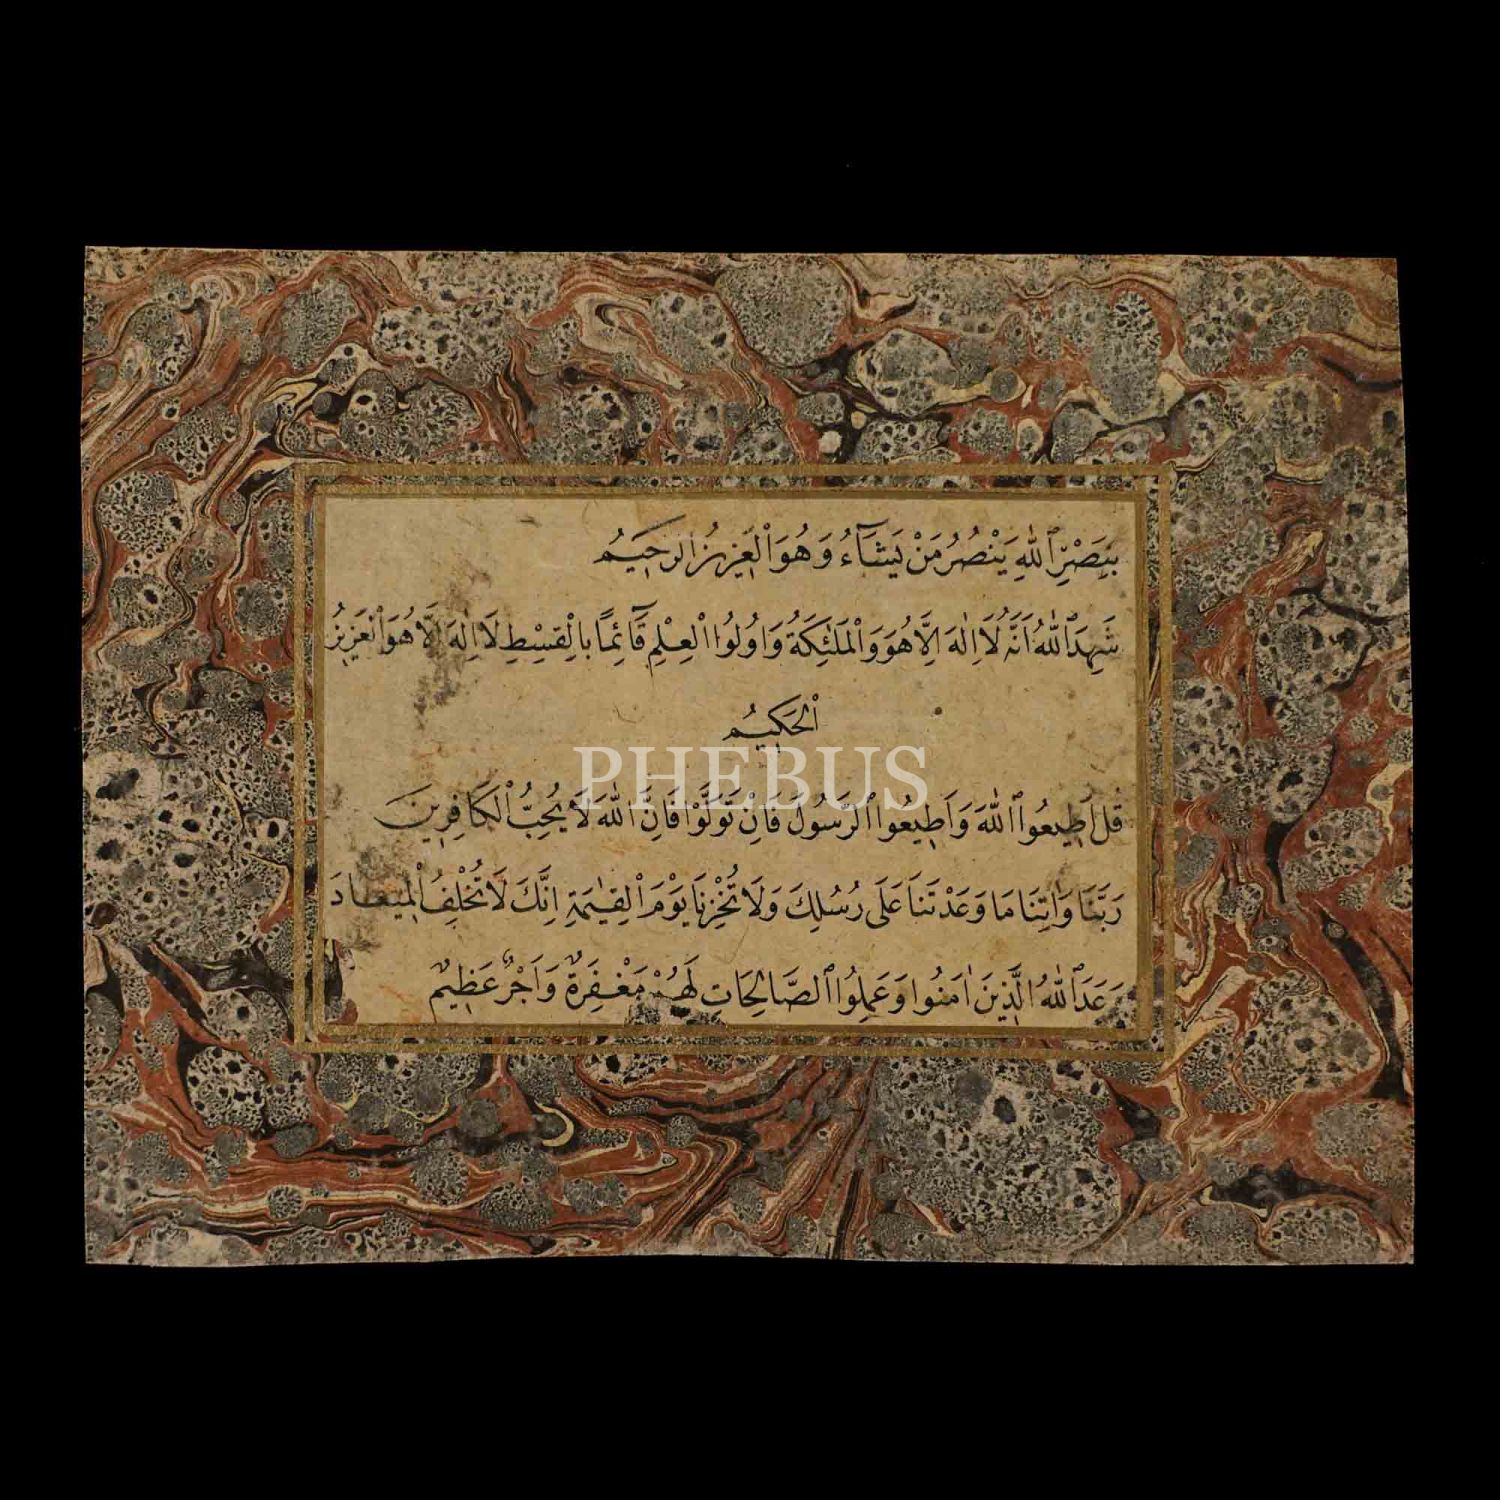 بِنَصْرِ ٱللّٰهِ يَنْصُرُ مَنْ يَشَآءُ وَهُوَ الْعَزِيزُ الرَحِيمُ
شَهِدَ ٱللّٰهُ اَنَّهُ لَا اِلٰهَ اِلَّا هُوَ وَالْمَلٰئِكَةُ وَاُولُوا الْعِلْمِ قَآئِمًا بِالْقِسْطِ لَا اِلٰهَ اِلَّا هُوَ الْعَزِيزُ
الْحَكِيمُ
PHEBUS
قُلْ اَطِيعُوا ٱللّٰهَ وَاَطِيعُوا ٱلرَّسُولَ فَاِنْ تَوَلَّوْا فَاِنَّ اللّٰهَ لَا يُحِبُّ الْكَافِرِينَ
رَبَّنَا وَاٰتِنَا مَا وَعَدْتَنَا عَلٰى رُسُلِكَ وَلَا تُخْزِنَا يَوْمَ الْقِيٰمَةِ اِنَّكَ لَا تُخْلِفُ الْمِيعَادَ
وَعَدَ ٱللّٰهُ الَّذِينَ اٰمَنُوا وَعَمِلُوا ٱلصَّالِحَاتِ لَهُمْ مَغْفِرَةٌ وَاَجْرٌ عَظِيمٌ